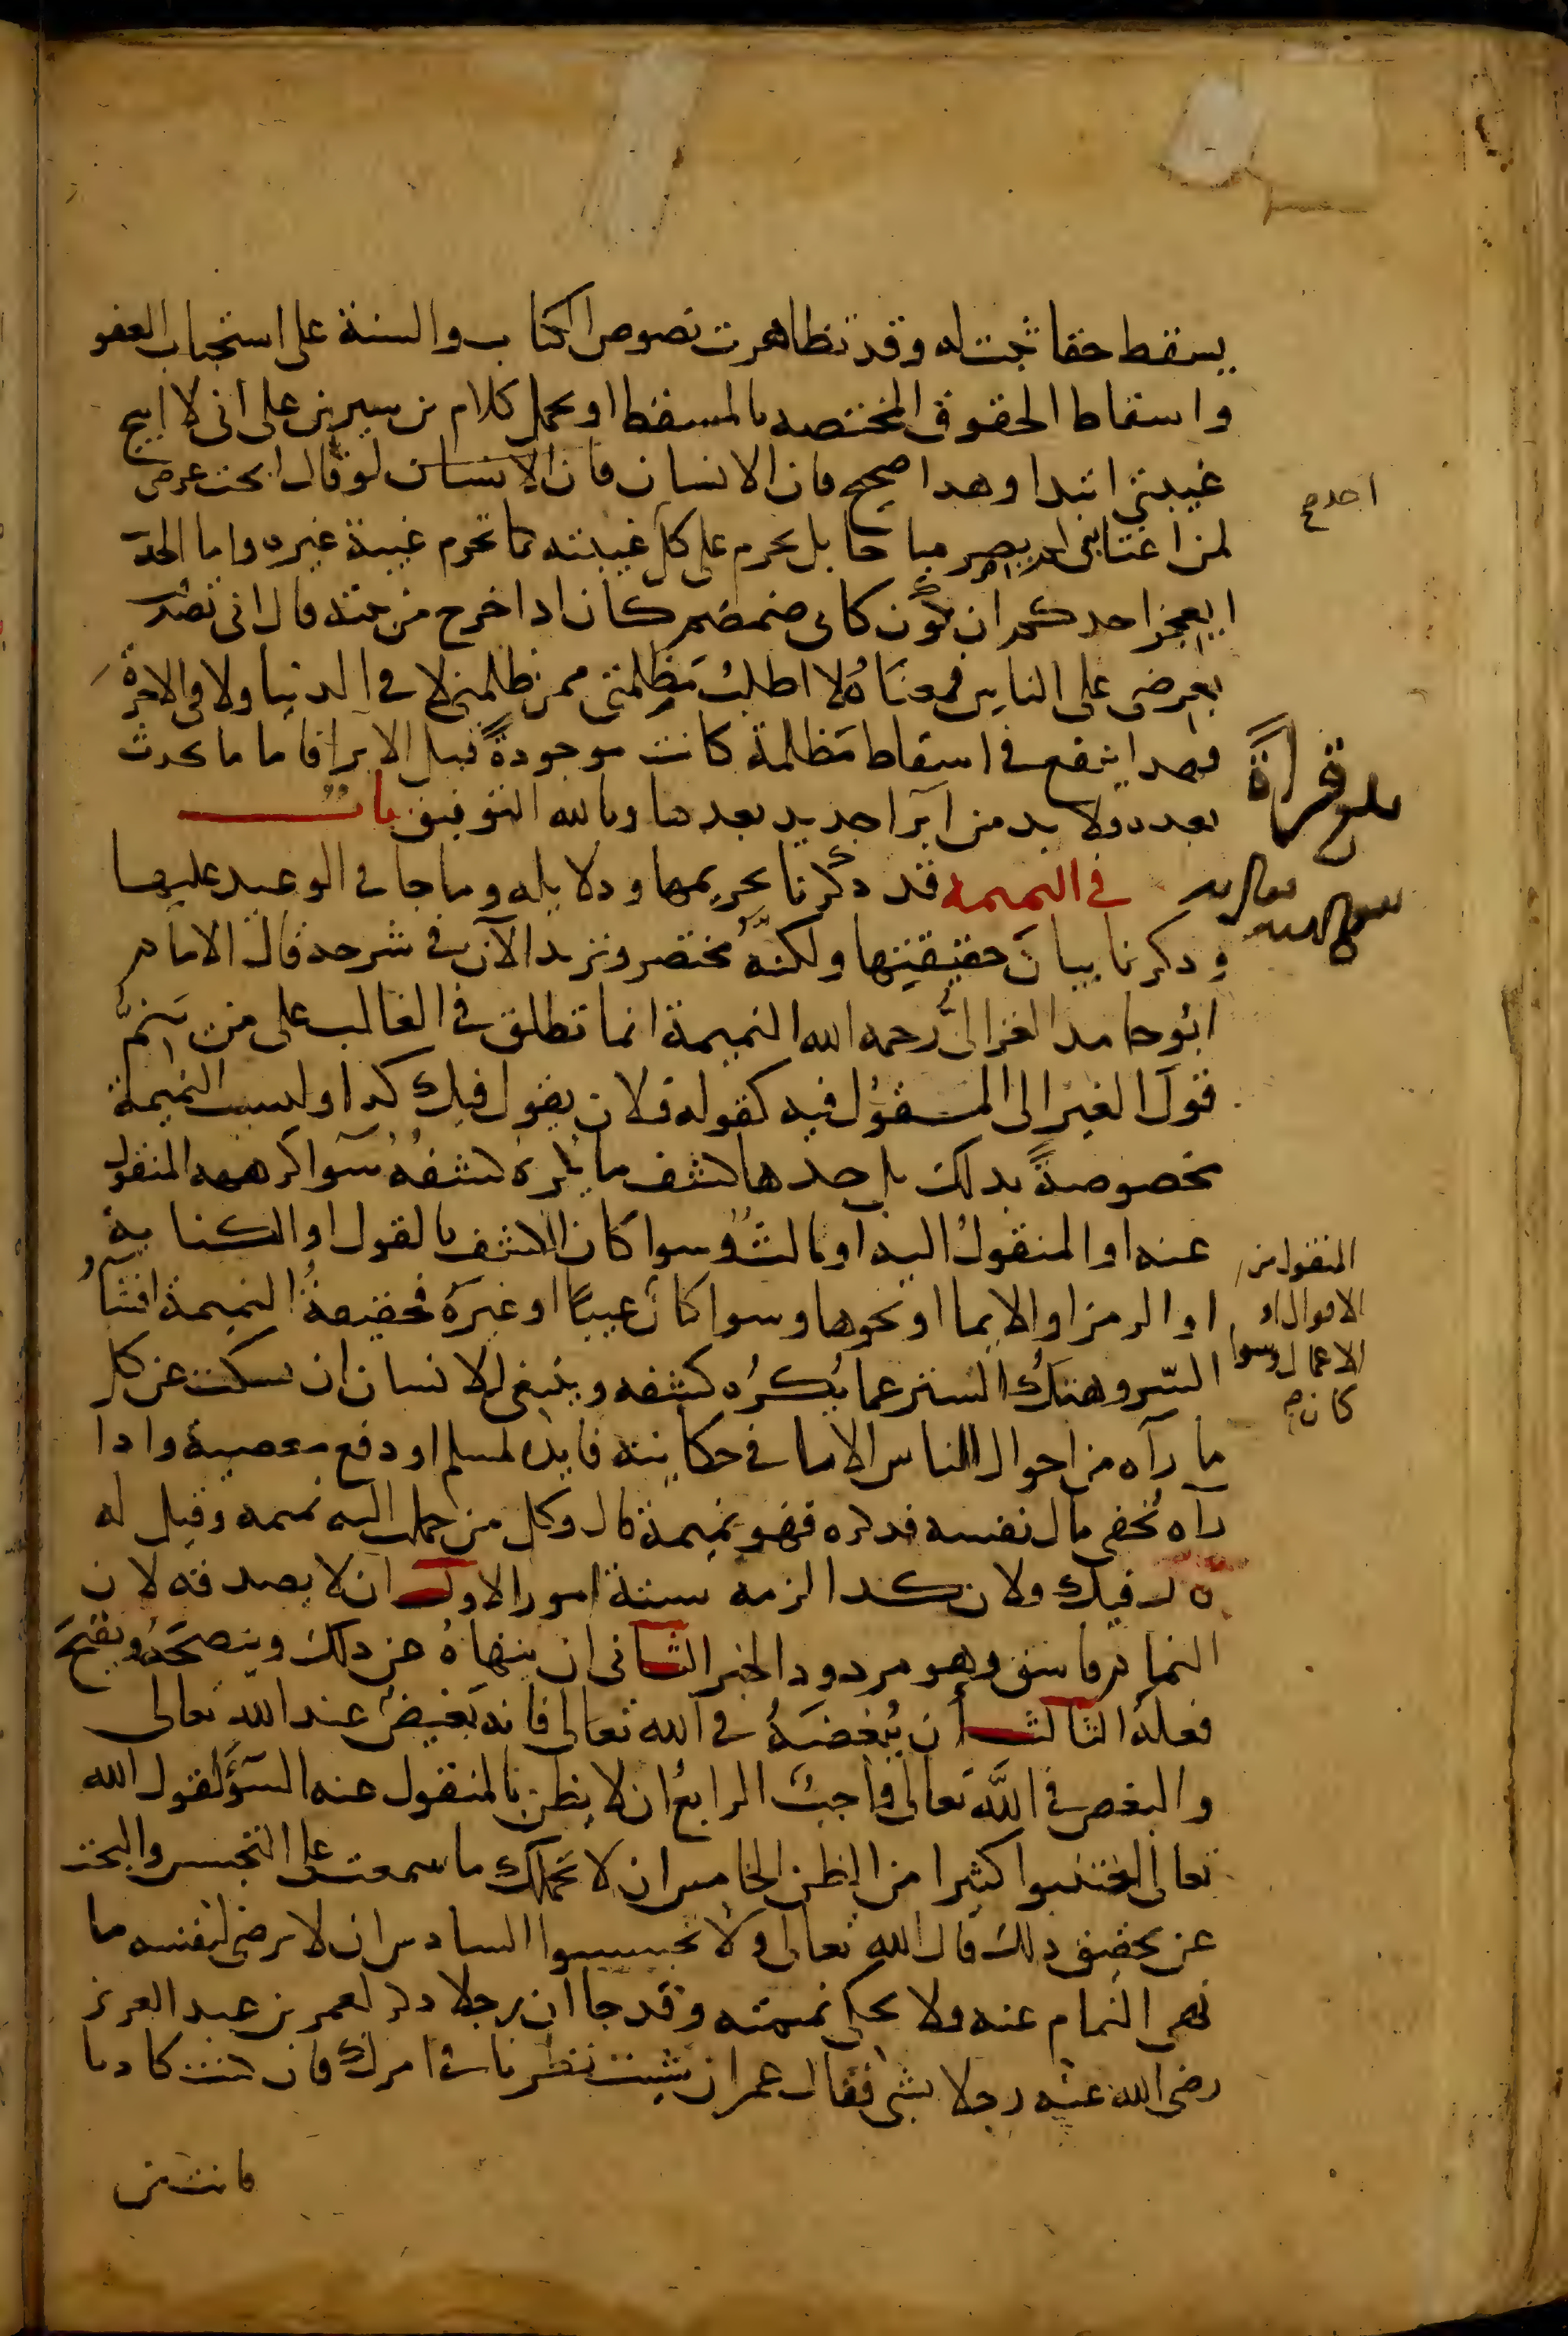 يسقط حقا ثبت له وقد تظاهرت نصوص الكتاب والسنة على استحباب العفو
واسقاط الحقوق المختصه بالمسقط او يحمل كلام بن سيرين على انى لا ابيح
غيبتي ابدا وهدا صحيح فان الانسان فان الانسان لو قال ابحت عرضى
احد صح
لمن اغتابنى لم يصر مباحا بل يحرم على كل غيبته كما تحرم غيبة غيره واما الحد
ايعجز احدكم ان يكون كابى ضمضم كان ادا خرج من بيته قال انى تصد
بعرضى على الناس فمعناه لا اطلب مظلمتى ممن ظلمنى لا في الدنيا ولا في الاخرة
فهدا ينفع في اسقاط مظلمة كانت موجودة قبل الابرا فاما ما يحدث
بلغ قراة
بعده ولا بد من ابرا جديد بعدها وبالله التوفيق باب
في النميمه قد دكرنا تحريمها ودلايله وما جا في الوعيد عليها
ودكرنا بيان حقيقتها ولكنه مختصر ونزيد الآن في شرحه قال الامام
ابو حامد الغزالى رحمه الله النميمة انما تطلق في الغالب على من ينم
قول الغير الى المقول فيه كقوله فلان يقول فيك كدا وليست النميمة
مخصوصة بدلك بل حدها كشف ما يكره كشفه سوا كرهه المنقول
عنه او المنقول اليه او ثالث وسوا كان الكشف بالقول او الكتابة
المنقول من
او الرمز او الايما او نحوها وسوا كان عيبا او غيره فحقيقة النميمة افشآ
الاقوال او
السر وهتك الستر عما يكره كشفه وينبغى للانسان ان يسكت عن كل
الاعمال وسوا
كان صح
ما رآه من احوال الناس الا ما في حكايته فايده لمسلم او دفع معصية وادا
رآه يخفى مال نفسه فدكره فهو نميمة قال وكل من حملت اليه نميمه وقيل له
قال فيك فلان كدا لزمه ستة امور الاول ان لا يصدقه لان
النمام فاسق وهو مردود الخبر الثانى ان ينهاه عن دلك وينصحه ويقبح
فعله الثالث أن يبغضه في الله تعالى فانه بغيض عند الله تعالى
والبغض في الله تعالى واجب الرابع ان لا يظن بالمنقول عنه السؤ لقول الله
تعالى اجتنبوا كثيرا من الظن الخامس ان لا يحملك ما سمعت على التجسس والبحث
عن تحقيق دلك قال الله تعالى ولا تجسسوا السادس ان لا يرضى لنفسه ما
نهى النمام عنه ولا يحكى نميمته وقد جا ان رجلا دكر لعمر بن عبد العزيز
رضى الله عنه رجلا بشى فقال عمر ان شيت نظرنا في امرك فان كنت كادبا
فانت من